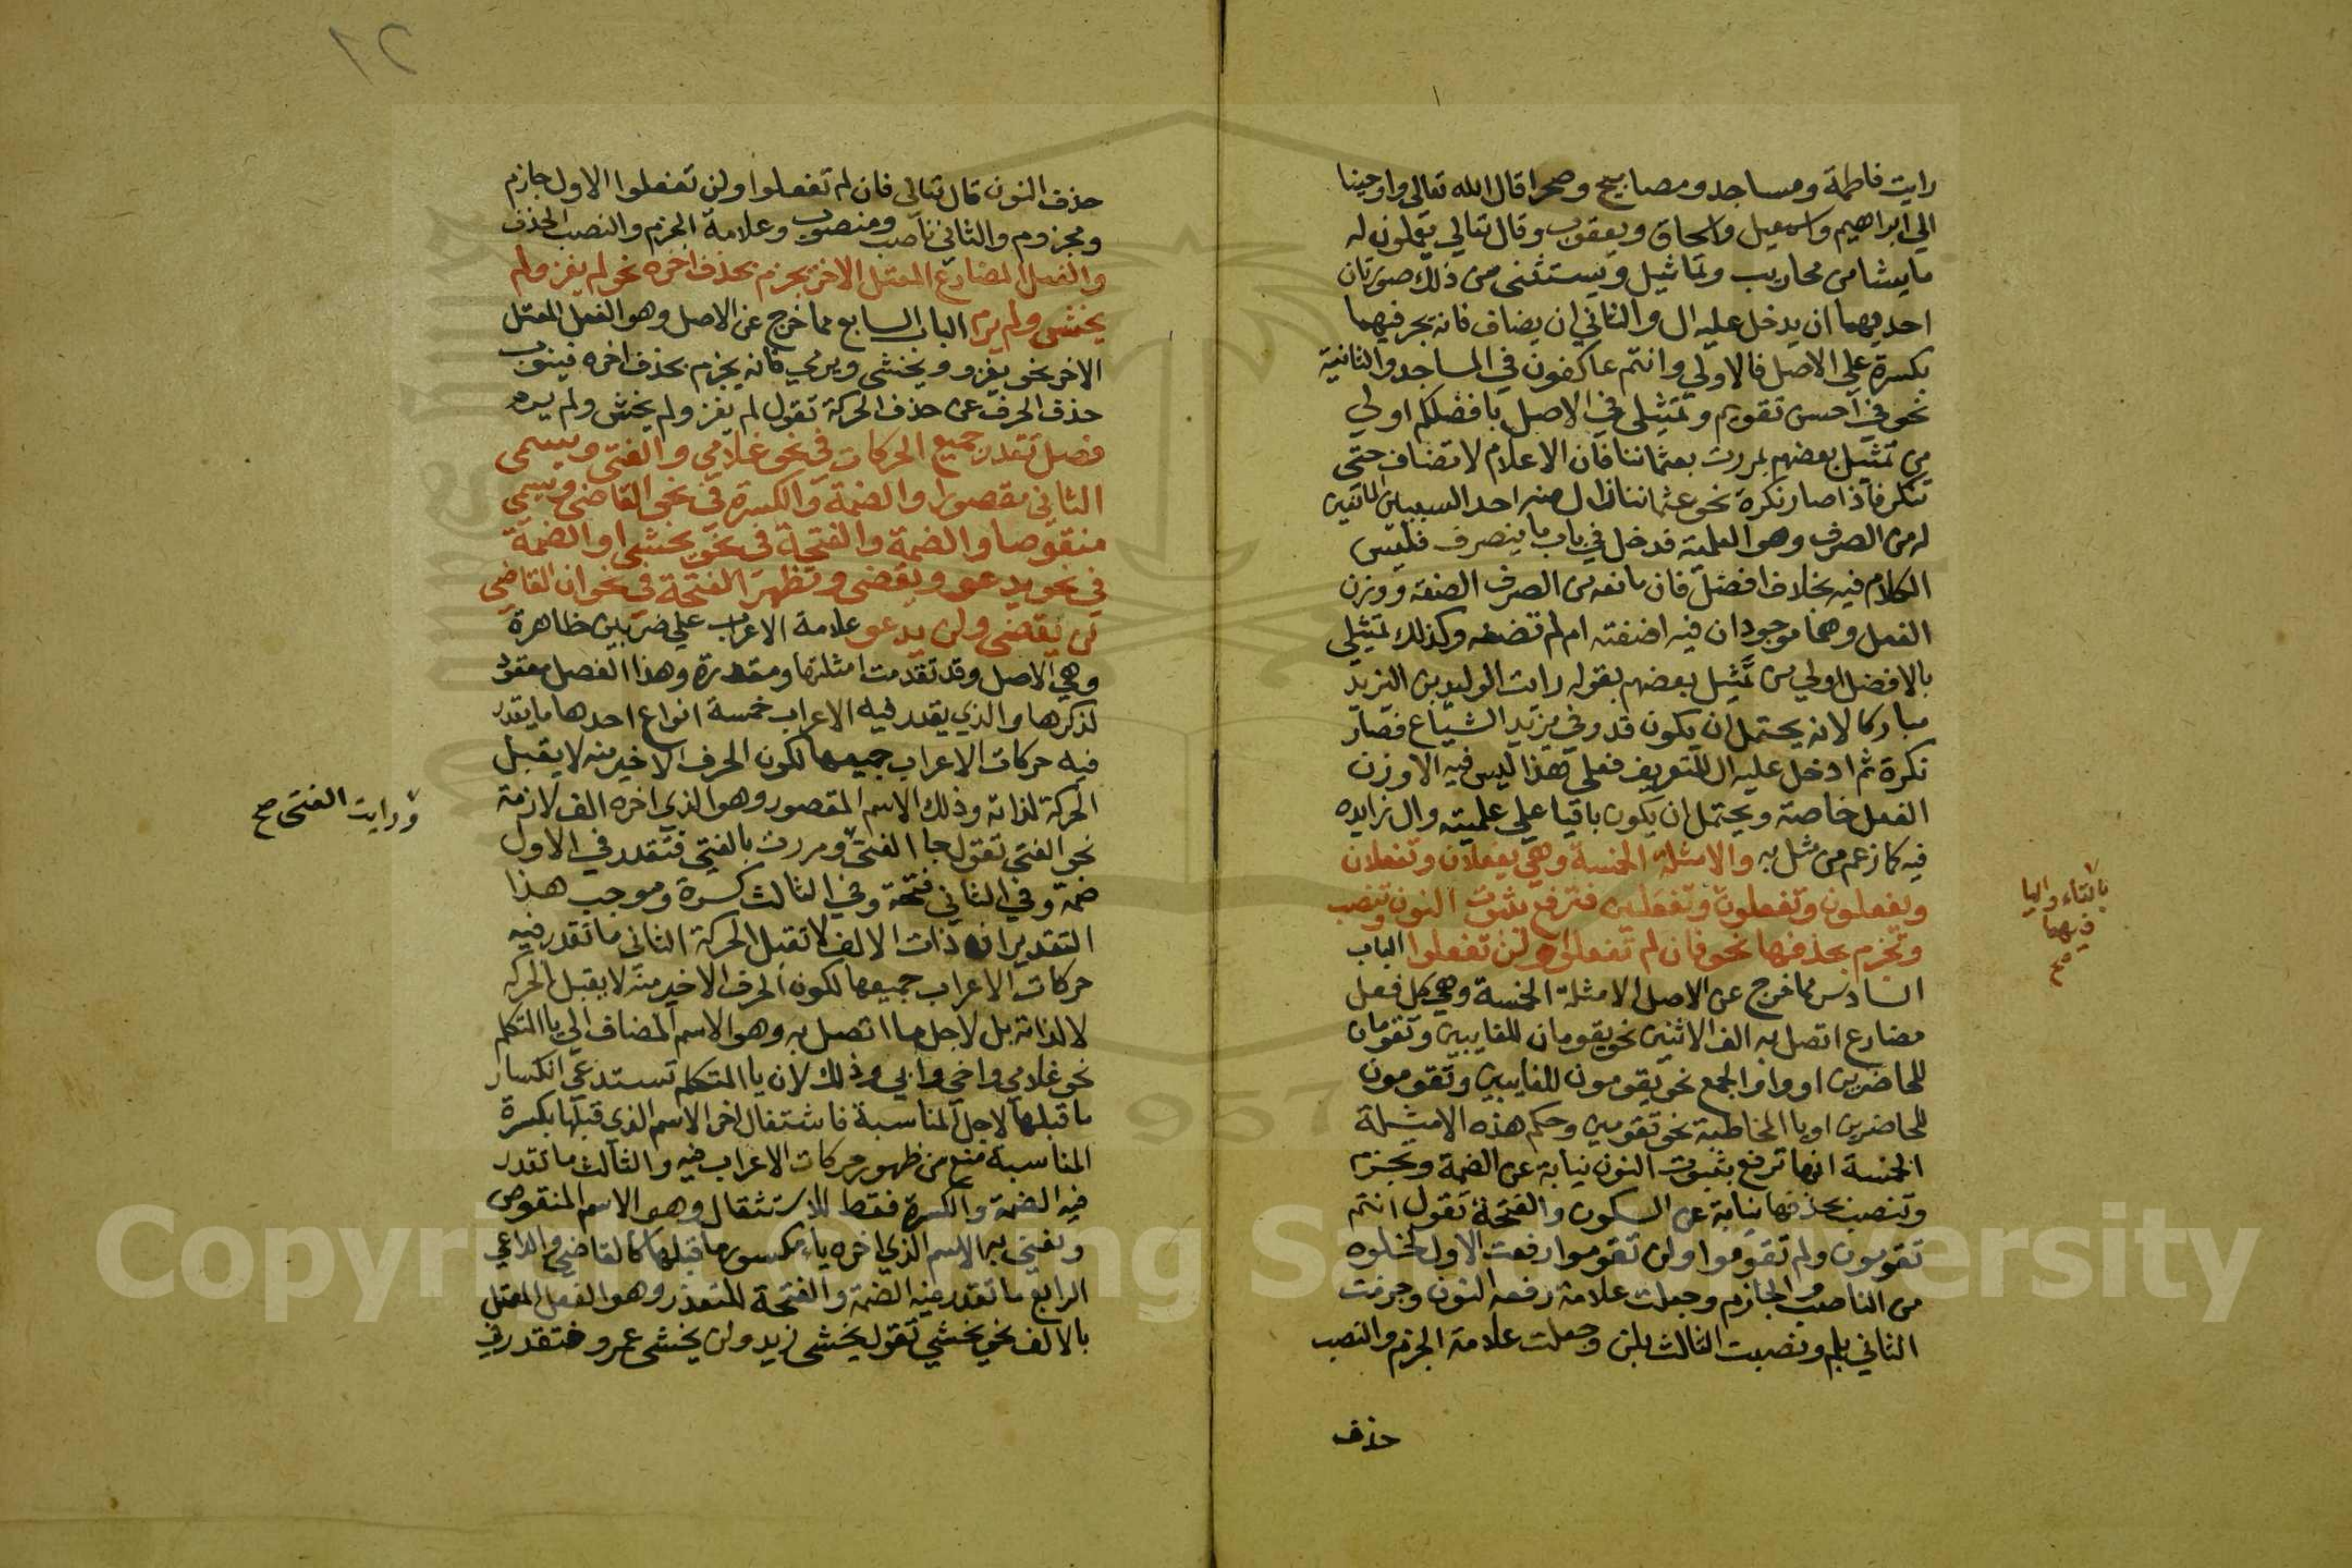 رايت فاطمة ومساجد ومصابيح وصحرا قال الله تعالى واوحينا
الي ابراهيم واسمعيل واسحاق ويعقوب وقال تعالي يعملون له
ما يشا من محاريب وتماثيل ويستثنى من ذلك صورتان
احديهما ان يدخل عليه ال والثاني ان يضاف فانه يجر فيهما
بكسرة علي الاصل فالاولي وانتم عاكفون في المساجد والثانية
نحو في احسن تقويم وتمثيلى في الاصل بافضلكم اولي
من تمثيل بعضهم بمررت بعثماننا فان الاعلام لا تضاف حتى
تنكر فاذا صار نكرة نحو عثماننا زال منه احد السببين المانعين
له من الصرف وهو العلمية فدخل في باب ما ينصرف فليس
الكلام فيه بخلاف افضل فان مانعه من الصرف الصفة ووزن
الفعل وهما موجودان فيه اضفته ام لم تضفه وكذلك تمثيلي
بالافضل اولي من تمثيل بعضهم بقوله رايت الوليد بن اليزيد
مباركا لانه يحتمل ان يكون قدر في يزيد الشياع فصار
نكرة ثم ادخل عليه ال للتعريف فعلى هذا ليس فيه الا وزن
الفعل خاصة ويحتمل ان يكون باقيا علي علميته وال زايده
فيه كما زعم من مثل به والامثلة الخمسة وهي يفعلان وتفعلان
ويفعلون وتفعلون وتفعلين فترفع بثبوت النون وتنصب
وتجزم بحذفها نحو فان لم تفعلوا ولن تفعلوا الباب
السادس مما خرج عن الاصل الامثلة الخمسة وهي كل فعل
مضارع اتصل به الف الاثنين نحو يقومان للغايبين وتقومان
للحاضرين او واو الجمع نحو يقومون للغايبين وتقومون
للحاضرين او يا المخاطبة نحو تقومين وحكم هذه الامثلة
الخمسة انها ترفع بثبوت النون نيابة عن الضمة وتجزم
وتنصب بحذفها نيابة عن السكون والفتحة تقول انتم
تقومون ولم تقوموا ولن تقوموا رفعت الاول لخلوه
من الناصب والجازم وجعلت علامة رفعه النون وجزمت
الثاني بلم ونصبت الثالث بلن وجعلت علامة الجزم والنصب
حذف
بالتاء واليا
فيهما
صح
٢١
حذف النون قال تعالى فان لم تفعلوا ولن تفعلوا الاول جازم
ومجزوم والثاني ناصب ومنصوب وعلامة الجزم والنصب الحذف
والفعل المضارع المعتل الاخر يجزم بحذف اخره نحو لم يغز ولم
يخشى ولم يرم الباب السابع مما خرج عن الاصل وهو الفعل المعتل
الاخر نحو يغزو ويخشى ويرمي فانه يجزم بحذف اخره فينوب
حذف الحرف عن حذف الحركة تقول لم يغز ولم يخش ولم يرم
فصل تقدر جميع الحركات في نحو غلامي والفتى ويسمى
الثاني مقصورا والضمة والكسرة في نحو القاضى ويسمى
منقوصا والضمة والفتحة في نحو يخشى والضمة
في نحو يدعو ويقضى وتظهر الفتحة في نحو ان القاضي
لن يقضى ولن يدعو علامة الاعراب علي ضربين ظاهرة
وهي الاصل وقد تقدمت امثلتها ومقدرة وهذا الفصل معقود
لذكرها والذي يقدر فيه الاعراب خمسة انواع احدها ما يقدر
فيه حركات الاعراب جميعها لكون الحرف الاخير منه لا يقبل
الحركة لذاته وذلك الاسم المقصور وهو الذي اخره الف لازمة
نحو الفتى تقول جا الفتى ومررت بالفتي فتقدر في الاول
ضمة وفي الثاني فتحة وفي الثالث كسرة وموجب هذا
التقدير ان ذات الالف لا تقبل الحركة الثاني ما تقدر فيه
حركات الاعراب جميعها لكون الحرف الاخير منه لا يقبل الحركة
لا لذاته بل لاجل ما اتصل به وهو الاسم المضاف الي يا المتكلم
نحو غلامي واخي وابي وذلك لان يا المتكلم تستدعي انكسار
ما قبلها لاجل المناسبة فاشتغال اخر الاسم الذى قبلها بكسرة
المناسبة منع من ظهور حركات الاعراب فيه والثالث ما تقدر
فيه الضمة والكسرة فقط للاستثقال وهو الاسم المنقوص
ونعنى به الاسم الذي اخره ياء مكسور ما قبلها كالقاضي والداعي
الرابع ما تقدر فيه الضمة والفتحة للتعذر وهو الفعل المعتل
بالالف نحو يخشي تقول يخشى زيد ولن يخشى عمرو فتقدر في
ورايت الفتى صح
Copyright King Saud University
1957